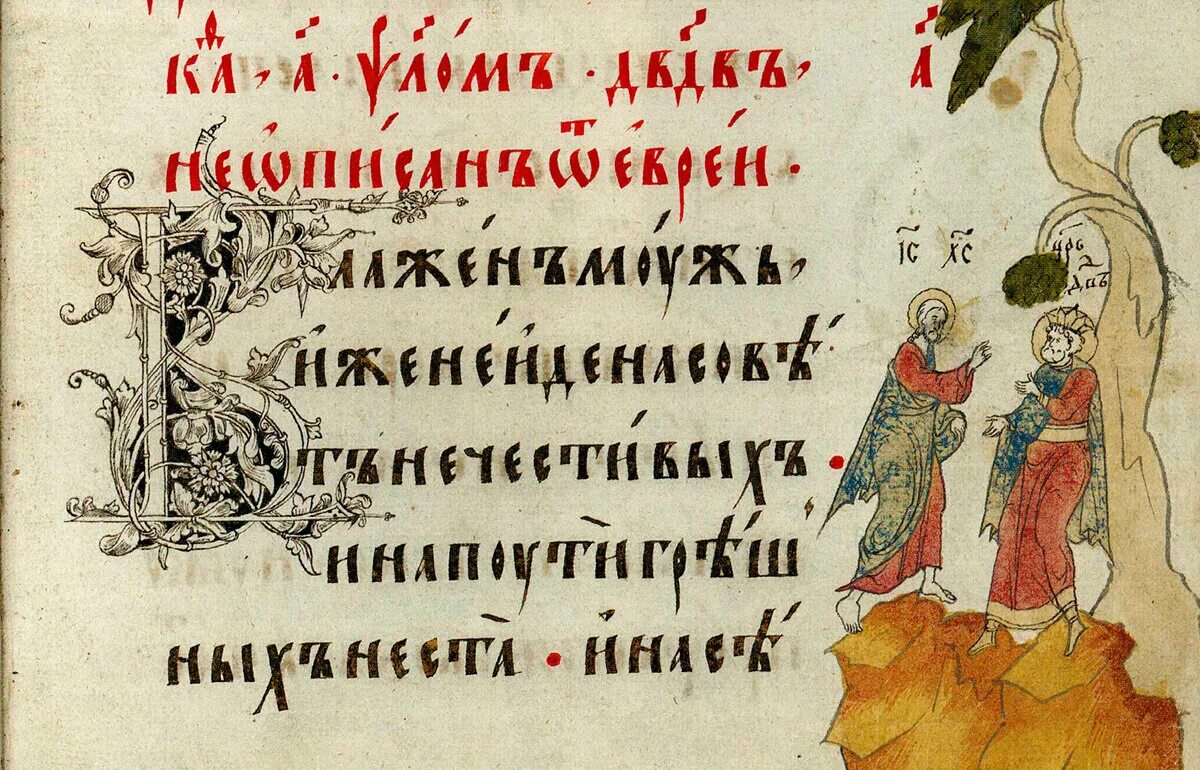 каѳ, а҃ · ѱло́мъ · дв҃двъ,
а҃
неѡпи́санъ ѿ евре́и ·
Блаже́нъ моу́жь,
и҆́же не и҆́де на совѣ́
тъ нечести́выхъ •
и на поутѝ грѣ́ш
ныхъ не ста̀ • и҆ на сѣ́
І҃С Х҃С
цр҃ь
дв҃дъ